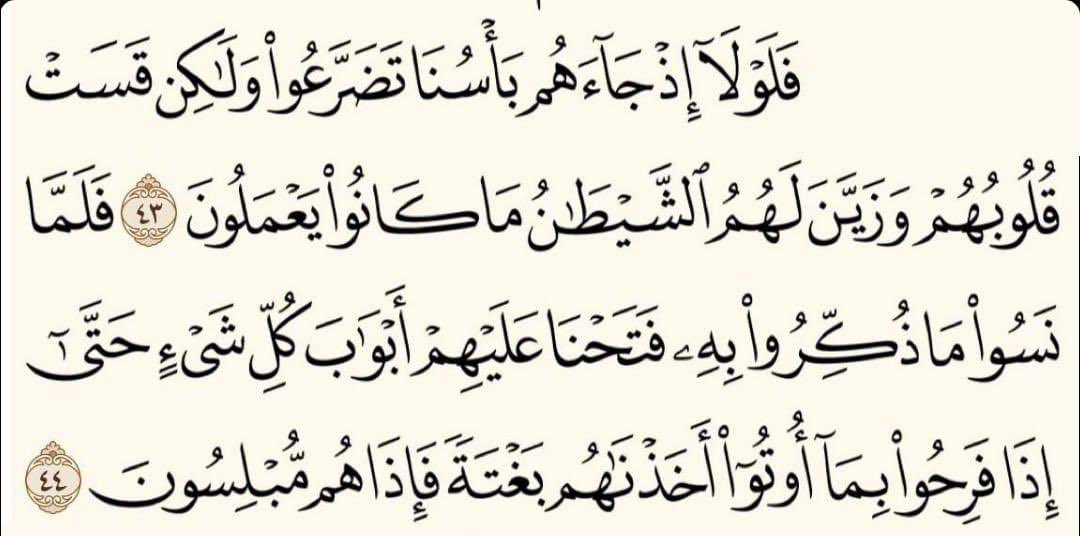 فَلَوْلَآ إِذْ جَآءَهُم بَأْسُنَا تَضَرَّعُوا۟ وَلَـٰكِن قَسَتْ
قُلُوبُهُمْ وَزَيَّنَ لَهُمُ ٱلشَّيْطَـٰنُ مَا كَانُوا۟ يَعْمَلُونَ ٤٣ فَلَمَّا
نَسُوا۟ مَا ذُكِّرُوا۟ بِهِۦ فَتَحْنَا عَلَيْهِمْ أَبْوَٰبَ كُلِّ شَىْءٍ حَتَّىٰٓ
إِذَا فَرِحُوا۟ بِمَآ أُوتُوٓا۟ أَخَذْنَـٰهُم بَغْتَةً فَإِذَا هُم مُّبْلِسُونَ ٤٤